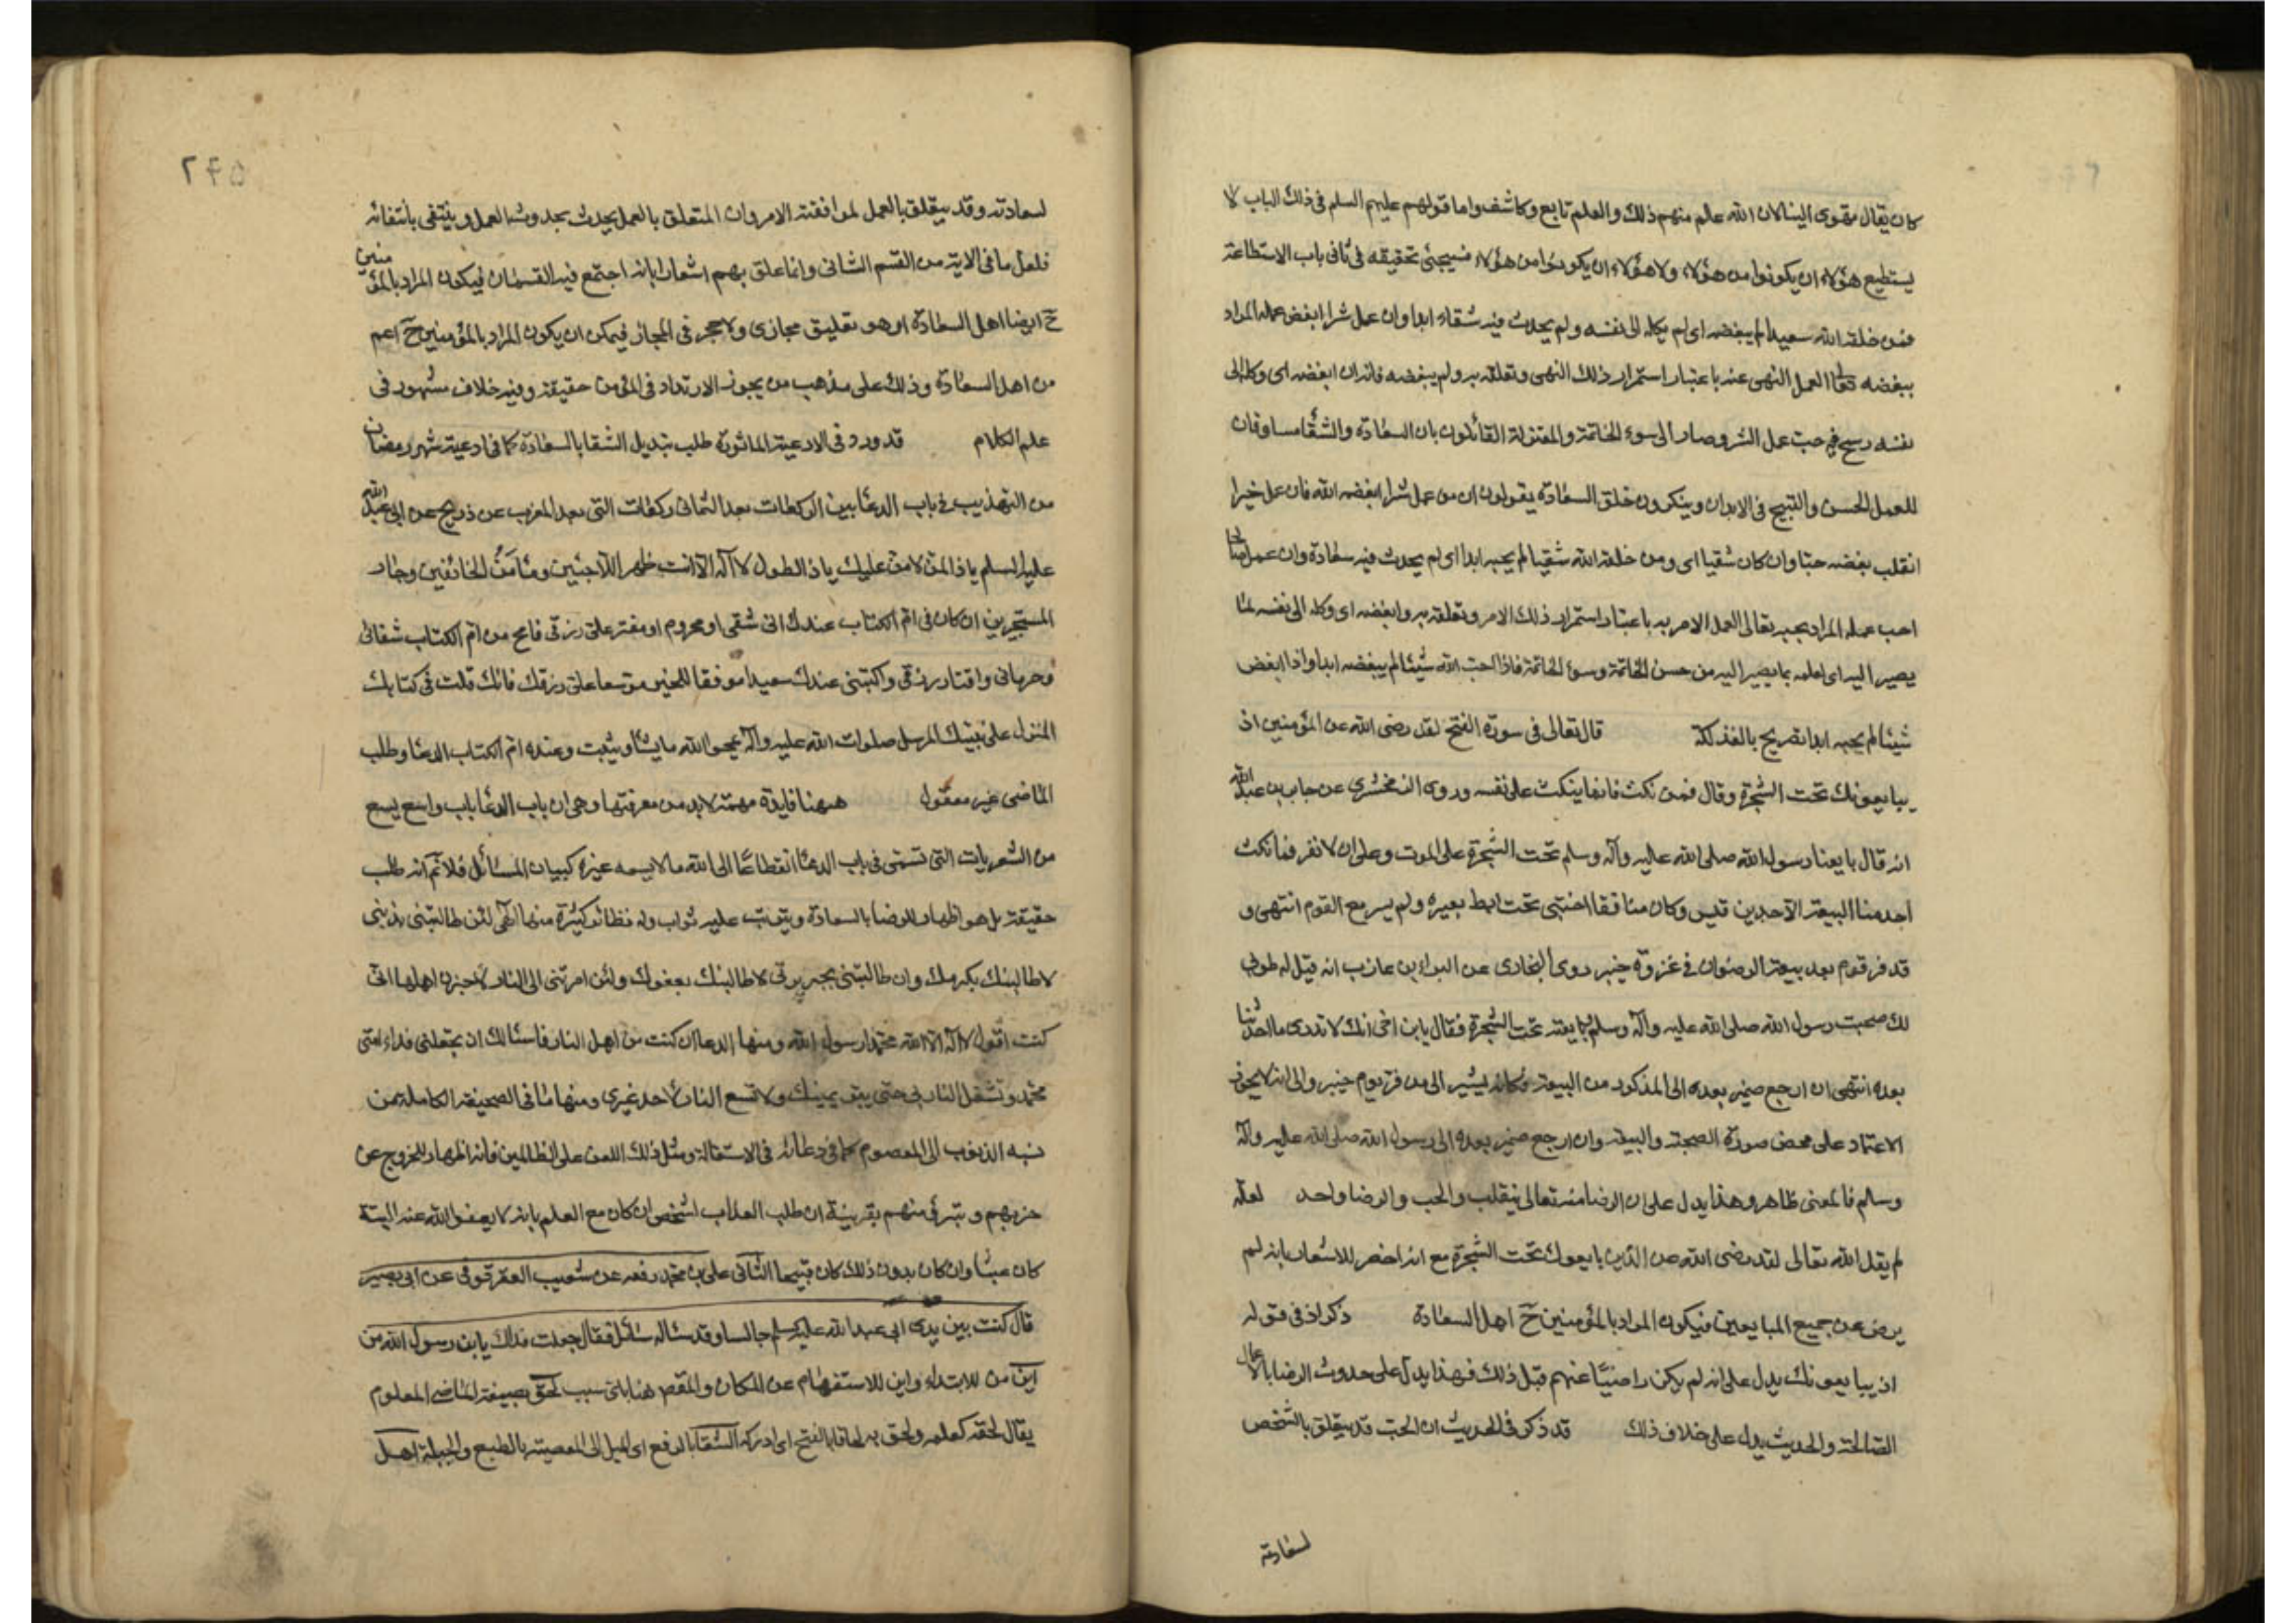 كان يقال مقوى الينا لان الله علم منهم ذلك والعلم تابع وكاشف واما قولهم عليهم السلم فى ذلك الباب لا
يستطيع هؤلاء ان يكونوا من هؤلاء ولا هؤلاء ان يكونوا من هؤلاء فسيجئ تحقيقه فى ثانى باب الاستطاعة
فمن خلقه الله سعيدا لم يبغضه اى لم يكله الى نفسه ولم يحدث فيه شقاء ابدا وان عمل شرا ابغض عمله المراد
ببغضه تعالى العمل النهى عنه باعتبار استمرار ذلك النهى وتعلقه به ولم يبغضه فانه ان ابغضه اى وكله الى
نفسه رسخ فيه حب عمل الشر وصار الى سوء الخاتمة والمعتزلة القائلون بان السعادة والشقا مساوقان
للعمل الحسن والقبيح فى الابدان وينكرون خلق السعادة يقولون ان من عمل شرا ابغضه الله فان عمل خيرا
انقلب بغضه حبا وان كان شقيا اى ومن خلقه الله شقيا لم يحبه ابدا اى لم يحدث فيه سعادة وان عمل صالحا
احب عمله المراد بحبه تعالى العمل الامر به باعتبار استمرار ذلك الامر وتعلقه به وابغضه اى وكله الى نفسه لما
يصير اليه اى لعلمه بما يصير اليه من حسن الخاتمة وسوء الخاتمة فاذا احب الله شيئا لم يبغضه ابدا واذا ابغض
شيئا لم يحبه ابدا تصريح بالفذلكة قال تعالى فى سورة الفتح لقد رضى الله عن المؤمنين اذ
يبايعونك تحت الشجرة وقال فمن نكث فانما ينكث على نفسه وروى الزمخشرى عن جابر بن عبد الله
انه قال بايعنا رسول الله صلى الله عليه وآله وسلم تحت الشجرة على الموت وعلى ان لا نفر فما نكث
احد منا البيعة الا جد بن قيس وكان منافقا اختبى تحت ابط بعيره ولم يسر مع القوم انتهى و
قد فر قوم بعد بيعة الرضوان فى غزوة خيبر روى البخارى عن البراء بن عازب انه قيل له طوبى
لك صحبت رسول الله صلى الله عليه وآله وسلم وبايعته تحت الشجرة فقال يابن اخى انك لا تدرى ما احدثنا
بعده انتهى ان ارجع ضمير بعده الى المذكور من البيعة فكانه يشير الى من فر يوم خيبر والى انه لا يجوز
الاعتماد على محض صورة الصحبة والبيعة وان ارجع ضمير بعده الى رسول الله صلى الله عليه وآله
وسلم فالمعنى ظاهر وهذا يدل على ان الرضا منه تعالى ينقلب والحب والرضا واحد لعله
لم يقل الله تعالى لقد رضى الله عن الذين بايعوك تحت الشجرة مع انه اخصر للاشعار بانه لم
يرض عن جميع المبايعين فيكون المراد بالمؤمنين ح اهل السعادة ذكر اذ فى قوله
اذ يبايعونك يدل على انه لم يكن راضيا عنهم قبل ذلك فهذا يدل على حدوث الرضا بالاعمال
الصالحة والحديث يدل على خلاف ذلك قد ذكر فى الحديث ان الحب قد يتعلق بالشخص
لسعادته
٢۴۵
لسعادته وقد يتعلق بالعمل لموافقته الامر وان المتعلق بالعمل يحدث بحدوث العمل وينتفى بانتفائه
فلعل ما فى الاية من القسم الثانى وانما علق بهم اشعارا بانه اجتمع فيه القسمان فيكون المراد بالمؤمنين
ح ايضا اهل السعادة او هو تعليق مجازى ولا حجر فى المجاز فيمكن ان يكون المراد بالمؤمنين ح اعم
من اهل السعادة وذلك على مذهب من يجوز الارتداد فى المؤمن حقيقة وفيه خلاف مشهور فى
علم الكلام قد ورد فى الادعية الماثورة طلب تبديل الشقا بالسعادة كما فى ادعية شهر رمضان
من التهذيب فى باب الدعا بين الركعات بعد الثمانى ركعات التى بعد المغرب عن ذريح عن ابى عبد الله
عليه السلم يا ذا المن لا من عليك يا ذا الطول لا اله الا انت ظهر اللاجئين ومأمن الخائفين وجار
المستجيرين ان كان فى ام الكتاب عندك انى شقى او محروم او مقتر على رزقى فامح من ام الكتاب شقائى
وحرمانى واقتار رزقى واكتبنى عندك سعيدا موفقا للخير موسعا على رزقك فانك قلت فى كتابك
المنزل على نبيك المرسل صلوات الله عليه وآله يمحوا الله ما يشاء ويثبت وعنده ام الكتاب الدعا وطلب
الماضى غير معقول ههنا فايدة مهمة لابد من معرفتها وهى ان باب الدعا باب واسع يسع
من الشعريات التى تسمى فى باب الدعا انقطاعا الى الله ما لا يسعه غيره كبيان المسائل فلا نم انه طلب
حقيقة بل هو اظهار للرضا بالسعادة ويترتب عليه ثواب وله نظائر كثيرة منها الهى لئن طالبتنى بذنبى
لاطالبنك بكرمك وان طالبتنى بجريرتى لاطالبنك بعفوك ولئن امرتنى الى النار لاخبرن اهلها انى
كنت اقول لا اله الا الله محمد رسول الله ومنها الدعا ان كنت من اهل النار فاسئالك ان تجعلنى فداء امتى
محمد وتشغل النار بى حتى يبر يمينك ولا تسع النار لاحد غيرى ومنها ما فى الصحيفة الكاملة من
نسبه الذنوب الى المعصوم كما فى دعائه فى الاستقالة ومثل ذلك اللعن على الظالمين فانه اظهار للخروج عن
حزبهم وتبرى منهم بقرينة ان طلب العذاب لشخص ان كان مع العلم بانه لا يعفوا الله عنه البتة
كان عبثا وان كان بدون ذلك كان قبيحا الثانى على بن محمد رفعه عن شعيب العقرقوفى عن ابى بصير
قال كنت بين يدى ابى عبد الله عليه السلم جالسا وقد ساله سائل فقال جعلت فداك يابن رسول الله من
اين من للابتداء واين للاستفهام عن المكان والمقصود هنا باى سبب لحق بصيغة الماضى المعلوم
يقال لحقه كعلمه ولحق به لحاقا بالفتح اى ادركه الشقا بالرفع اى الميل الى المعصية بالطبع والجبلة اهل